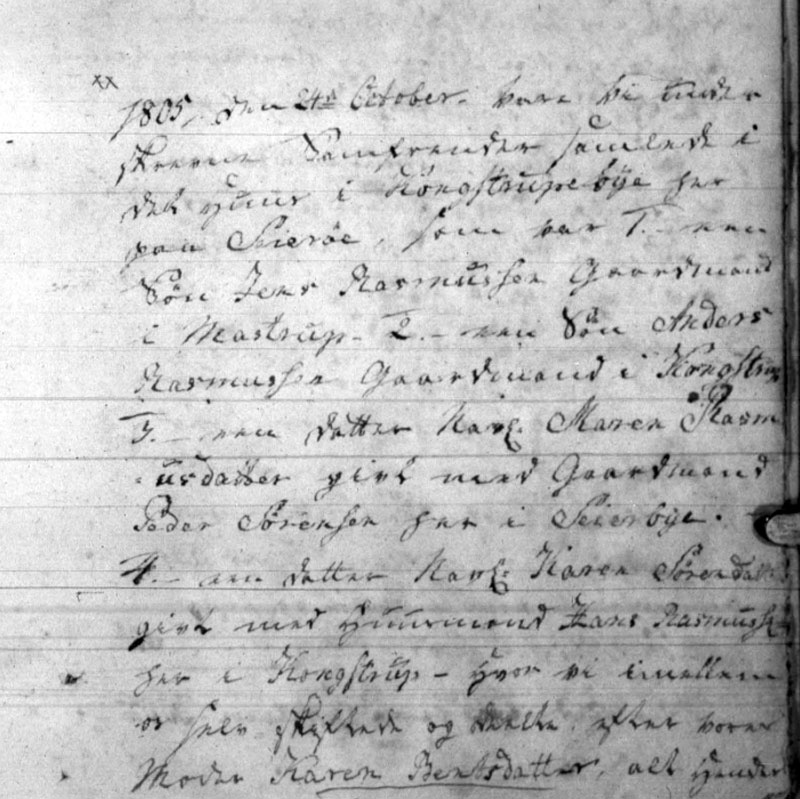 xx
1805, den 24de October. vare vi under
skrevne Samfrender samlede i
det Huus i Kongstrupebÿe her
paa Seierøe, som var 1.- een
Søn Jens Rasmussen Gaardmand
i Mastrup - 2.- een Søn Anders
Rasmussen Gaardmand i Kongstrup
3.- een datter Navl. Maren Rasm
usdatter givt med Gaardmand
Peder Sørensen her i Seierbÿe.
4.- een datter Navl: Karen Sørensdatt
givt med Huusmand Hans Rasmuss
her i Kongstrup - Hvor vi imellem
os selv skiftede og deelte, efter vores
Moder Karen Bentsdatter, alt Hendes